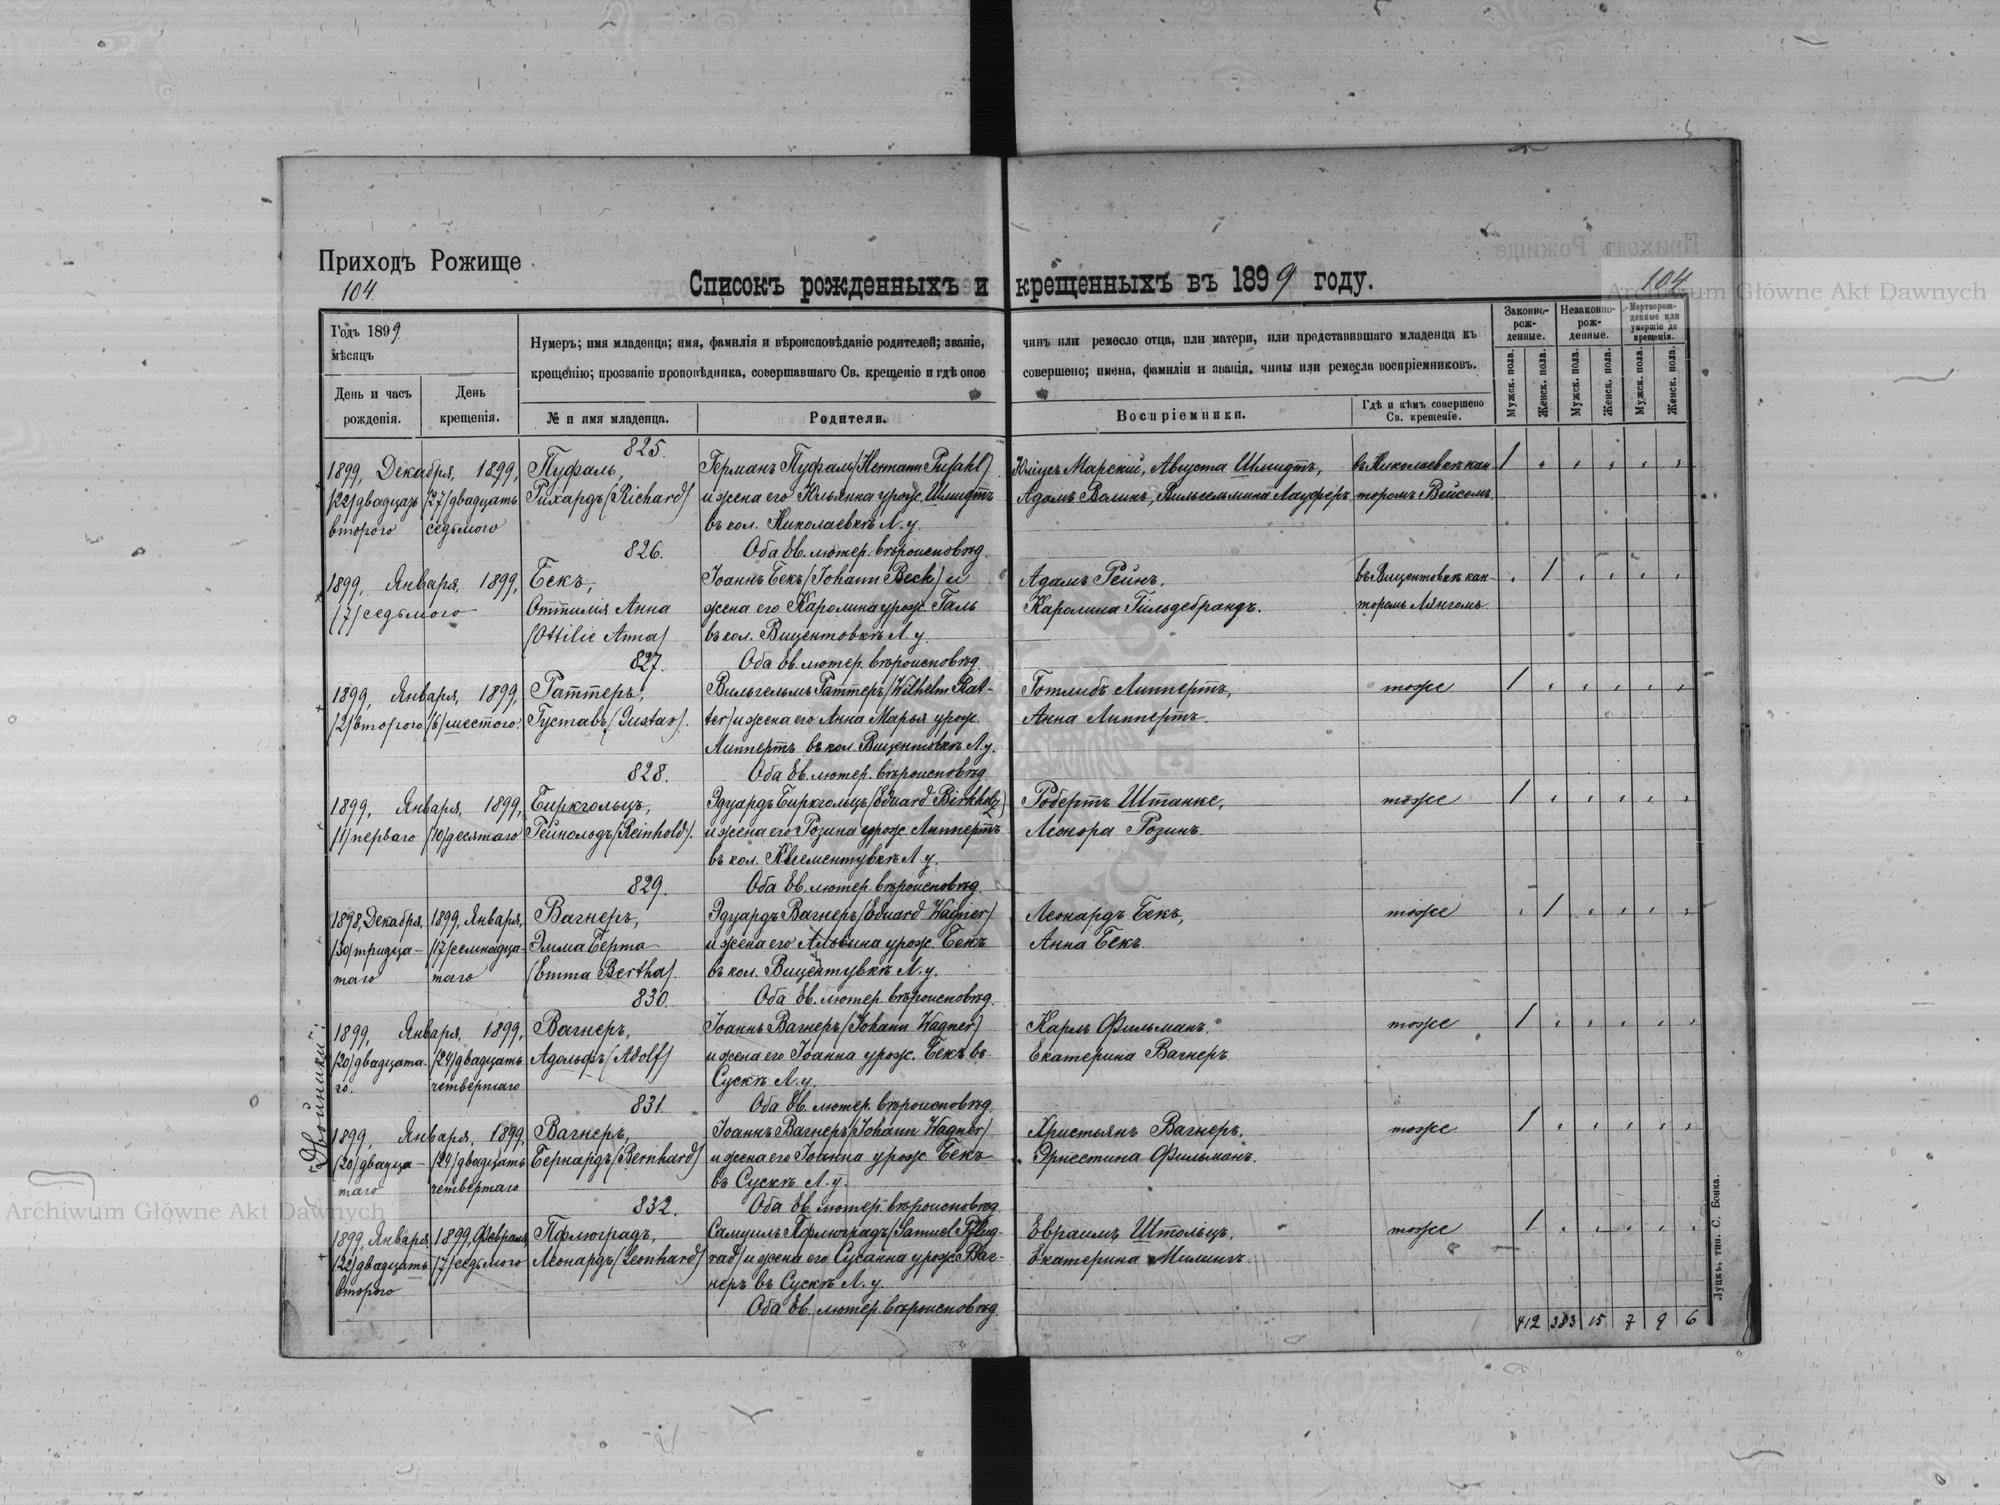 Приходъ Рожище
104.
Списокъ рожденныхъ и крещенныхъ въ 1899 году.
104
Archiwum Główne Akt Dawnych
Годъ 1899.
мѣсяцъ
День и часъ рожденія.
День крещенія.
Нумеръ; имя младенца; имя, фамилія и вѣроисповѣданіе родителей; званіе, чинъ или ремесло отца, или матери, или представившаго младенца къ
крещенію; прозваніе проповѣдника, совершавшаго Св. крещеніе и гдѣ оное совершено; имена, фамиліи и званія, чины или ремесла воспріемниковъ.
№ и имя младенца.
Родители.
Воспріемники.
Гдѣ и кѣмъ совершено Св. крещеніе.
Законно-рож-денные.
Незаконно-рож-денные.
Мертворож-денные или умершіе до крещенія.
Мужск. пола.
Женск. пола.
Мужск. пола.
Женск. пола.
Мужск. пола.
Женск. пола.
825.
1899, Декабря, 1899, Пуфаль, Германъ Пуфаль (Hermann Pufahl) Юліусъ Марскій, Августа Шмидтъ, въ Николаевкѣ кан 1
(22) двадцать (27) двадцать Рихардъ (Richard) и жена его Юльянна урож. Шмидтъ Адамъ Валинъ, Вильгельмина Лауферъ торомъ Вейсомъ.
второго седьмого въ кол. Николаевкѣ Л. у.
826. Оба Ев. лютер. вѣроисповѣд.
1899, Января, 1899, Бекъ, Іоаннъ Бекъ (Johann Beck) и Адамъ Рейнъ. въ Вицентовкѣ кан- 1
(7) седьмого Оттилія Анна жена его Каролина урож. Галь Каролина Гильдебрандъ. торомъ Лянгомъ.
(Ottilie Anna) въ кол. Вицентовкѣ Л. у.
827. Оба Ев. лютер. вѣроисповѣд.
1899, Января, 1899, Раттеръ, Вильгельмъ Раттеръ (Wilhelm Rat- Готлибъ Липпертъ, тоже 1
(2) второго (6) шестого. Густавъ (Gustav). ter) и жена его Анна Марья урож. Анна Липпертъ.
Липпертъ въ кол. Вицентовкѣ Л. у.
828. Оба Ев. лютер. вѣроисповѣд.
1899, Января, 1899, Биркгольцъ, Эдуардъ Биркгольцъ (Eduard Birkholz) Робертъ Штанке, тоже 1
(1) перваго (10) десятаго Рейнольдъ (Reinhold). и жена его Розина урож. Липпертъ Леонора Розинъ.
въ кол. Клементувкѣ Л. у.
829. Оба Ев. лютер. вѣроисповѣд.
1898, Декабря, 1899, Января, Вагнеръ, Эдуардъ Вагнеръ (Eduard Wagner) Леонардъ Бекъ, тоже 1
(30) тридца- (17) семнадца- Эмма Берта и жена его Альвина урож. Бекъ Анна Бекъ.
таго таго (Emma Bertha). въ кол. Вицентувкѣ Л. у.
830. Оба Ев. лютер. вѣроисповѣд.
Двойники:
1899, Января, 1899, Вагнеръ, Іоаннъ Вагнеръ (Johann Wagner) Карлъ Фильманъ. тоже 1
(20) двадцата- (24) двадцать Адольфъ (Adolf) и жена его Іоанна урож. Бекъ въ Екатерина Вагнеръ.
го. четвертаго Сускѣ Л. у.
831. Оба Ев. лютер. вѣроисповѣд.
1899, Января, 1899, Вагнеръ, Іоаннъ Вагнеръ (Johann Wagner) Христьянъ Вагнеръ. тоже 1
(20) двадца- (24) двадцать Бернардъ (Bernhard) и жена его Іоанна урож. Бекъ Эрнестина Фильманъ.
таго четвертаго въ Сускѣ Л. у.
832. Оба Ев. лютер. вѣроисповѣд.
1899, Января, 1899, Февраля Пфлюградъ, Самуилъ Пфлюградъ (Samuel Pflug- Евраимъ Штольцъ, тоже 1
(22) двадцать (7) седьмого Леонардъ (Leonhard) rad) и жена его Сусанна урож. Ваг- Екатерина
второго неръ въ Сускѣ Л. у.
Оба Ев. лютер. вѣроисповѣд.
412 383 15 7 9 6
Луцкъ, тип. С. Бонка.
Archiwum Główne Akt Dawnych